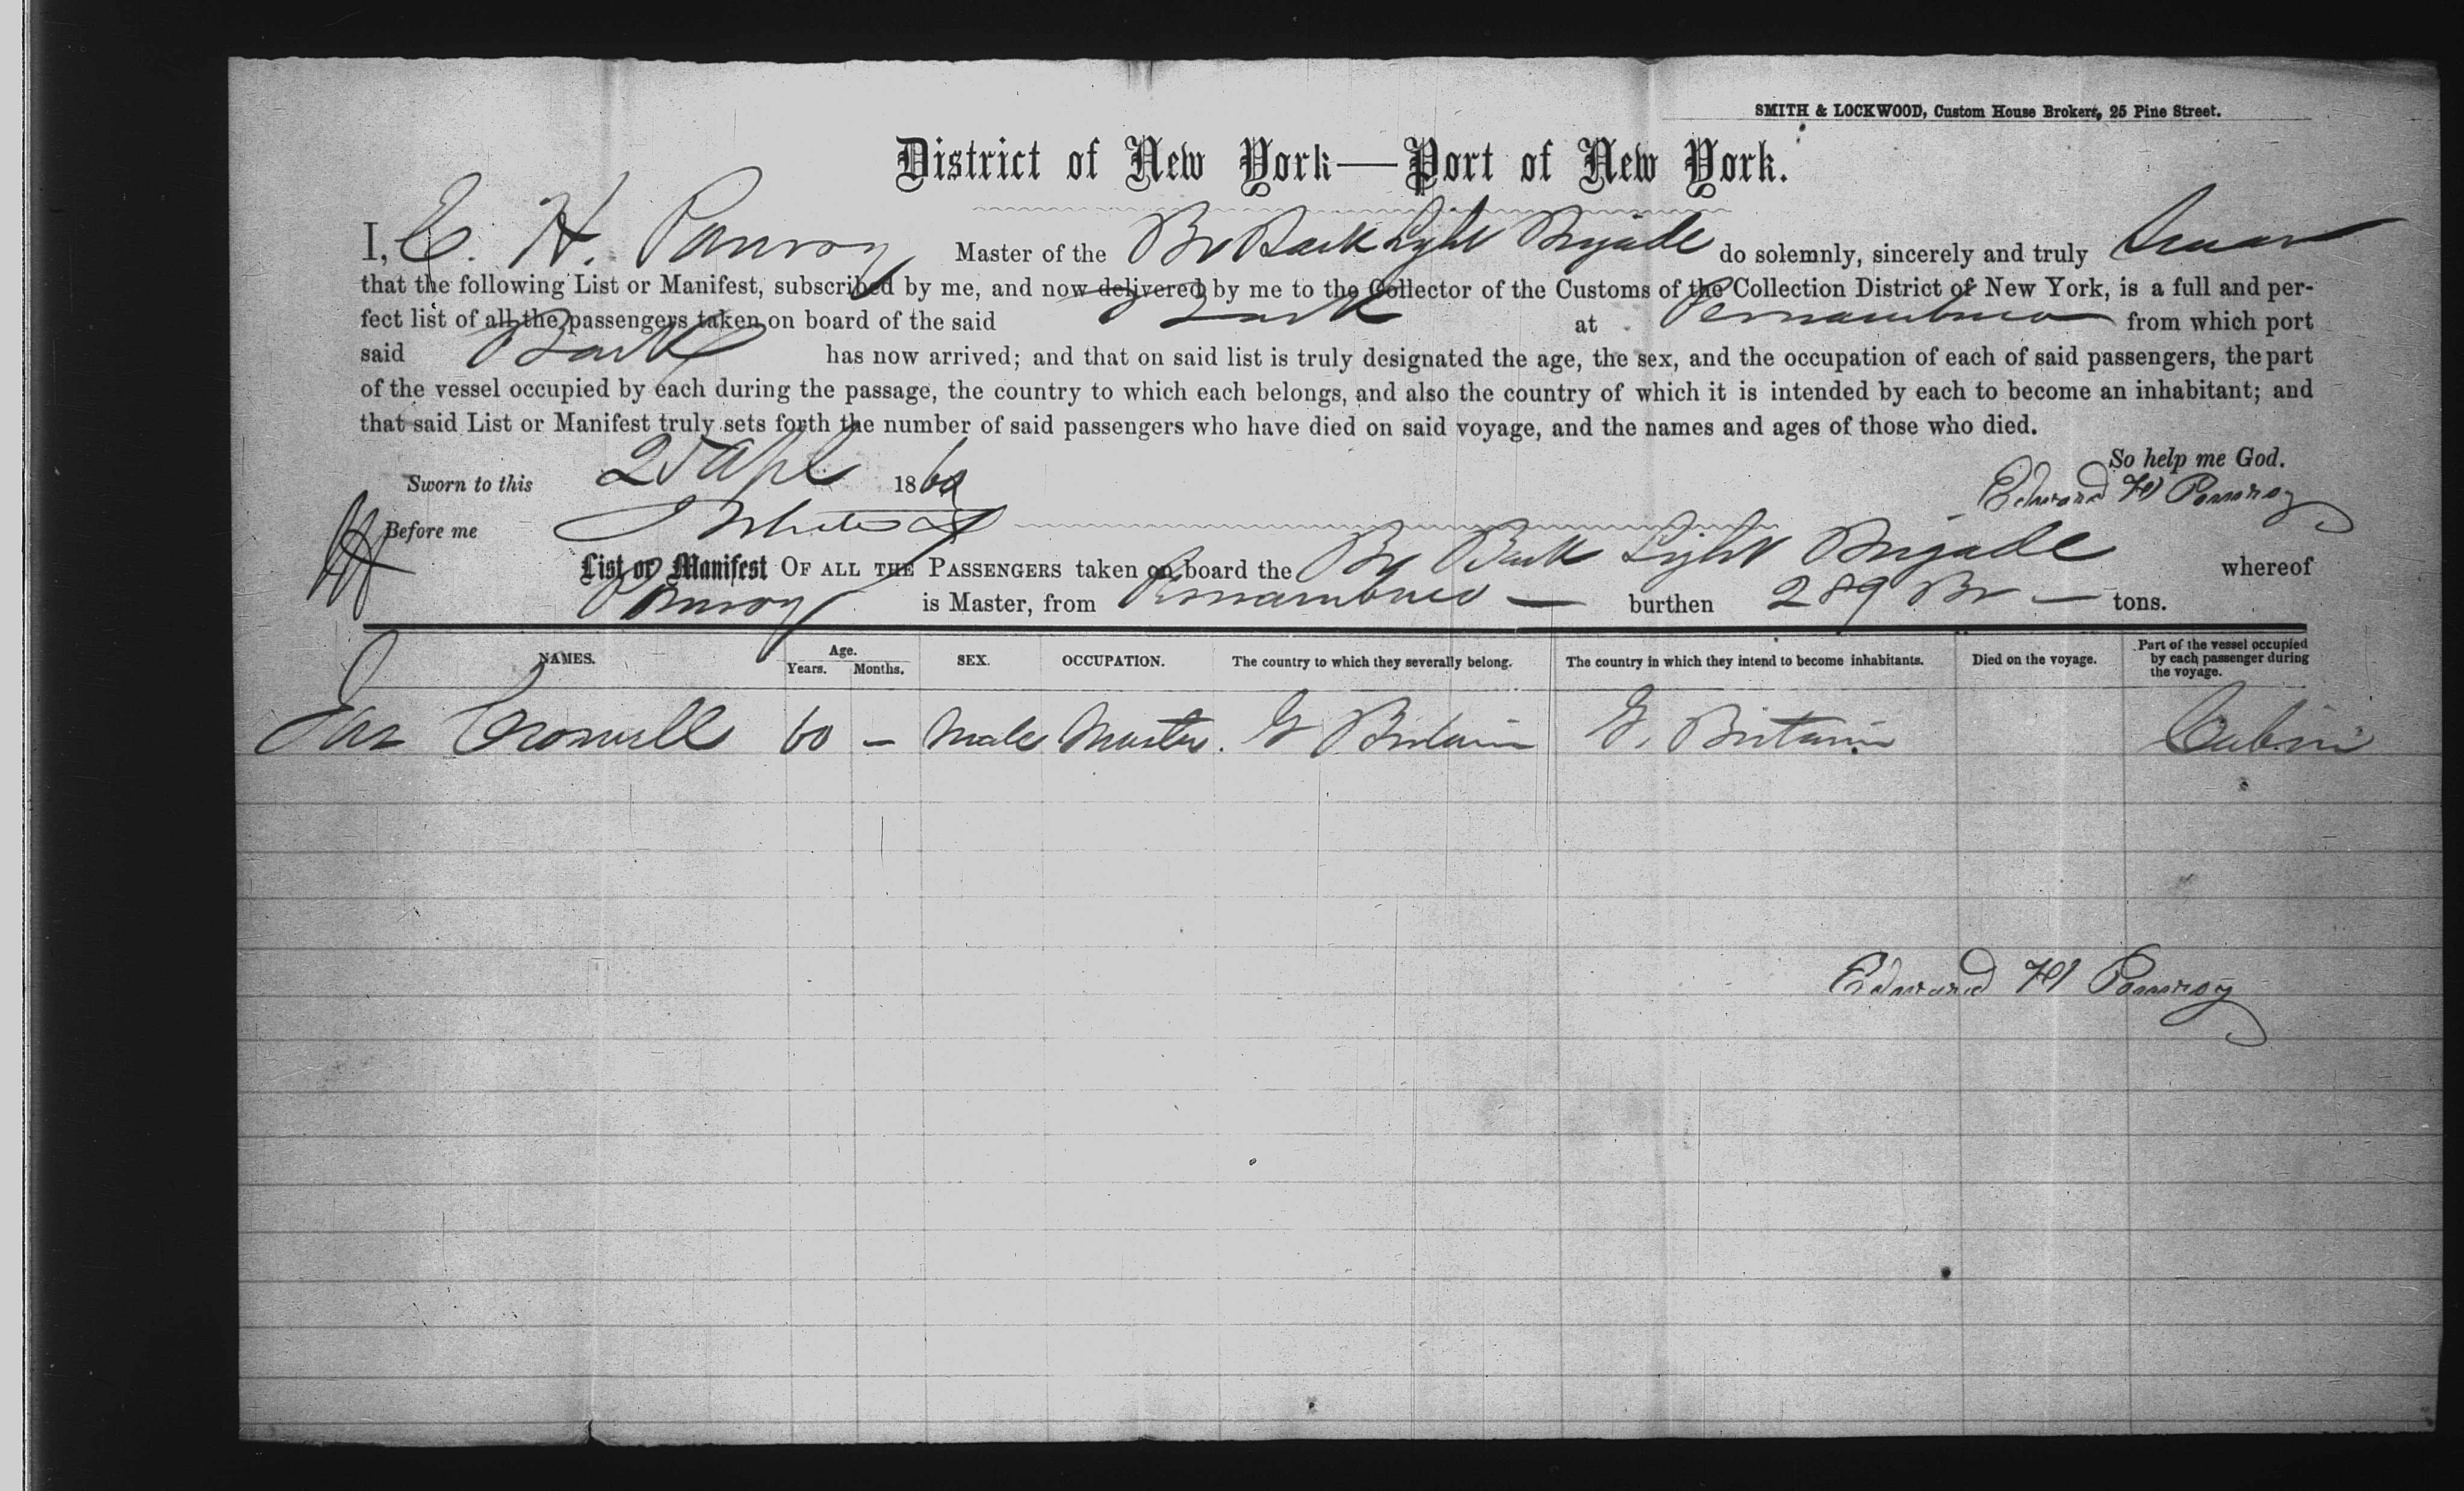 SMITH & LOCKWOOD, Custom House Brokers, 25 Pine Street.
District of New York—Port of New York.
I, E. H. Pomroy Master of the Br Bark Light Brigade do solemnly, sincerely and truly swear
that the following List or Manifest, subscribed by me, and now delivered by me to the Collector of the Customs of the Collection District of New York, is a full and per-
fect list of all the passengers taken on board of the said Bark at Pernambuco from which port
said Bark has now arrived; and that on said list is truly designated the age, the sex, and the occupation of each of said passengers, the part
of the vessel occupied by each during the passage, the country to which each belongs, and also the country of which it is intended by each to become an inhabitant; and
that said List or Manifest truly sets forth the number of said passengers who have died on said voyage, and the names and ages of those who died.
So help me God.
Sworn to this 25 Apl 186
Edward H Pomroy
Before me
List or Manifest OF ALL THE PASSENGERS taken on board the Br Bark Light Brigade whereof
Pomroy is Master, from Pernambuco — burthen 289 Br — tons.
NAMES. Age. Years. Months. SEX. OCCUPATION. The country to which they severally belong. The country in which they intend to become inhabitants. Died on the voyage. Part of the vessel occupied by each passenger during the voyage.
Jas Cromwell 60 — Male Master. G Britain G. Britain Cabin
Edward H Pomroy